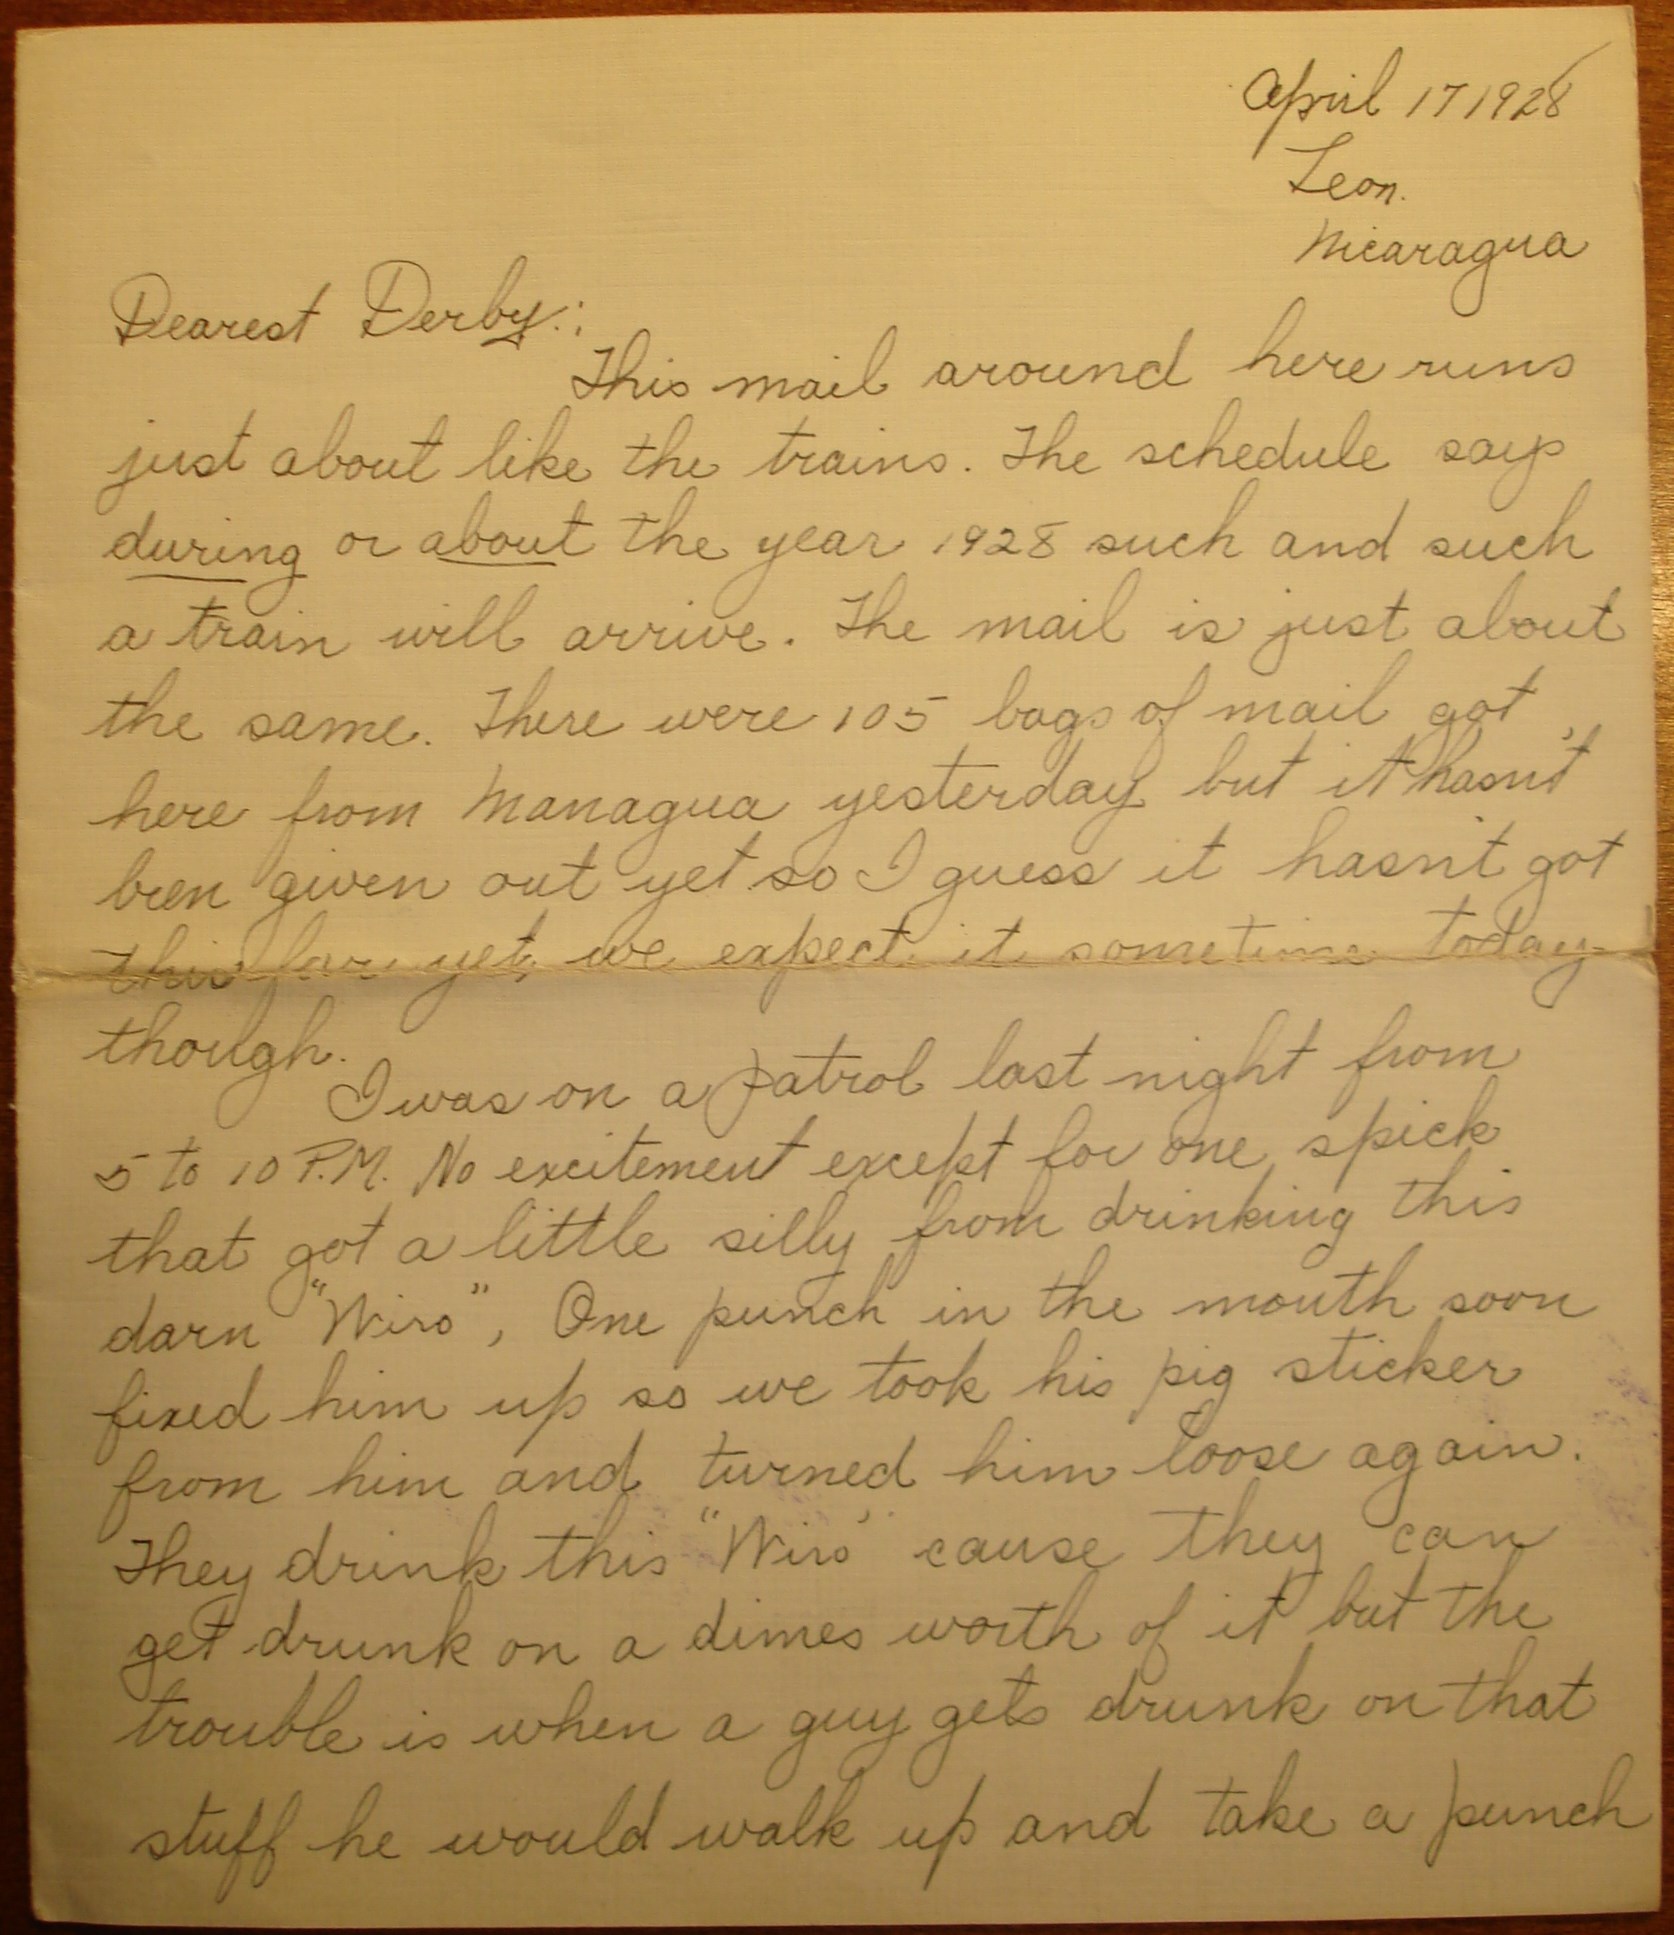 April 17 1928
Leon.
Nicaragua
Dearest Derby.:
This mail around here runs
just about like the trains. The schedule says
during or about the year 1928 such and such
a train will arrive. The mail is just about
the same. There were 105 bags of mail got
here from Managua yesterday but it hasn't
been given out yet so I guess it hasn't got
this far yet, we expect it sometime today
though.
I was on a patrol last night from
5 to 10 P.M. No excitement except for one spick
that got a little silly from drinking this
darn "Wiro", One punch in the mouth soon
fixed him up so we took his pig sticker
from him and turned him loose again.
They drink this "Wiro" cause they can
get drunk on a dimes worth of it but the
trouble is when a guy gets drunk on that
stuff he would walk up and take a punch